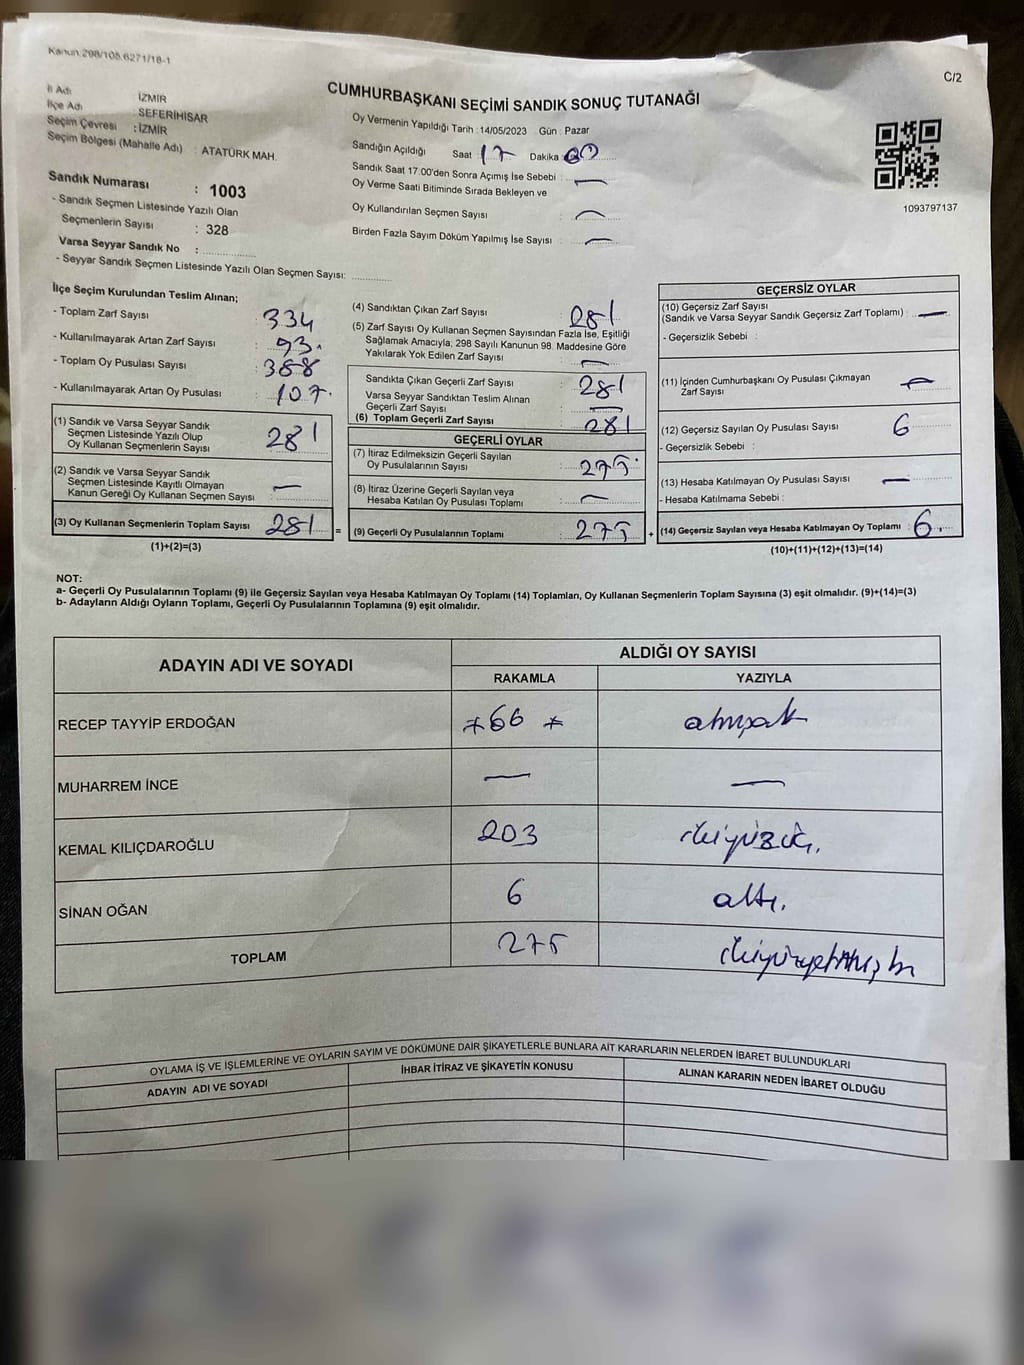 Kanun.298/105.6271/18-1
C/2
CUMHURBAŞKANI SEÇİMİ SANDIK SONUÇ TUTANAĞI
İl Adı : İZMİR
İlçe Adı : SEFERİHİSAR
Seçim Çevresi : İZMİR
Seçim Bölgesi (Mahalle Adı) : ATATÜRK MAH.
Sandık Numarası : 1003
- Sandık Seçmen Listesinde Yazılı Olan
Seçmenlerin Sayısı : 328
Varsa Seyyar Sandık No :
- Seyyar Sandık Seçmen Listesinde Yazılı Olan Seçmen Sayısı:
Oy Vermenin Yapıldığı Tarih : 14/05/2023 Gün : Pazar
Sandığın Açıldığı Saat 17 Dakika 00
Sandık Saat 17.00'den Sonra Açımış İse Sebebi : —
Oy Verme Saati Bitiminde Sırada Bekleyen ve
Oy Kullandırılan Seçmen Sayısı : —
Birden Fazla Sayım Döküm Yapılmış İse Sayısı : —
1093797137
İlçe Seçim Kurulundan Teslim Alınan;
- Toplam Zarf Sayısı : 334
- Kullanılmayarak Artan Zarf Sayısı : 93.
- Toplam Oy Pusulası Sayısı : 388
- Kullanılmayarak Artan Oy Pusulası : 107.
(1) Sandık ve Varsa Seyyar Sandık
Seçmen Listesinde Yazılı Olup
Oy Kullanan Seçmenlerin Sayısı : 281
(2) Sandık ve Varsa Seyyar Sandık
Seçmen Listesinde Kayıtlı Olmayan
Kanun Gereği Oy Kullanan Seçmen Sayısı : —
(3) Oy Kullanan Seçmenlerin Toplam Sayısı : 281 =
(1)+(2)=(3)
(4) Sandıktan Çıkan Zarf Sayısı : 281
(5) Zarf Sayısı Oy Kullanan Seçmen Sayısından Fazla İse, Eşitliği
Sağlamak Amacıyla, 298 Sayılı Kanunun 98. Maddesine Göre
Yakılarak Yok Edilen Zarf Sayısı : —
Sandıkta Çıkan Geçerli Zarf Sayısı : 281
Varsa Seyyar Sandıktan Teslim Alınan
Geçerli Zarf Sayısı : —
(6) Toplam Geçerli Zarf Sayısı : 281
GEÇERLİ OYLAR
(7) İtiraz Edilmeksizin Geçerli Sayılan
Oy Pusulalarının Sayısı : 275.
(8) İtiraz Üzerine Geçerli Sayılan veya
Hesaba Katılan Oy Pusulası Toplamı : —
(9) Geçerli Oy Pusulalarının Toplamı : 275 +
GEÇERSİZ OYLAR
(10) Geçersiz Zarf Sayısı
(Sandık ve Varsa Seyyar Sandık Geçersiz Zarf Toplamı) : —
- Geçersizlik Sebebi :
(11) İçinden Cumhurbaşkanı Oy Pusulası Çıkmayan
Zarf Sayısı : —
(12) Geçersiz Sayılan Oy Pusulası Sayısı : 6
- Geçersizlik Sebebi :
(13) Hesaba Katılmayan Oy Pusulası Sayısı : —
- Hesaba Katılmama Sebebi :
(14) Geçersiz Sayılan veya Hesaba Katılmayan Oy Toplamı : 6.
(10)+(11)+(12)+(13)=(14)
NOT:
a- Geçerli Oy Pusulalarının Toplamı (9) ile Geçersiz Sayılan veya Hesaba Katılmayan Oy Toplamı (14) Toplamları, Oy Kullanan Seçmenlerin Toplam Sayısına (3) eşit olmalıdır. (9)+(14)=(3)
b- Adayların Aldığı Oyların Toplamı, Geçerli Oy Pusulalarının Toplamına (9) eşit olmalıdır.
ADAYIN ADI VE SOYADI ALDIĞI OY SAYISI
RAKAMLA YAZIYLA
RECEP TAYYİP ERDOĞAN *66* altmışaltı
MUHARREM İNCE — —
KEMAL KILIÇDAROĞLU 203 ikiyüzüç.
SİNAN OĞAN 6 altı.
TOPLAM 275 ikiyüzyetmişbeş
OYLAMA İŞ VE İŞLEMLERİNE VE OYLARIN SAYIM VE DÖKÜMÜNE DAİR ŞİKAYETLERLE BUNLARA AİT KARARLARIN NELERDEN İBARET BULUNDUKLARI
ADAYIN ADI VE SOYADI İHBAR İTİRAZ VE ŞİKAYETİN KONUSU ALINAN KARARIN NEDEN İBARET OLDUĞU